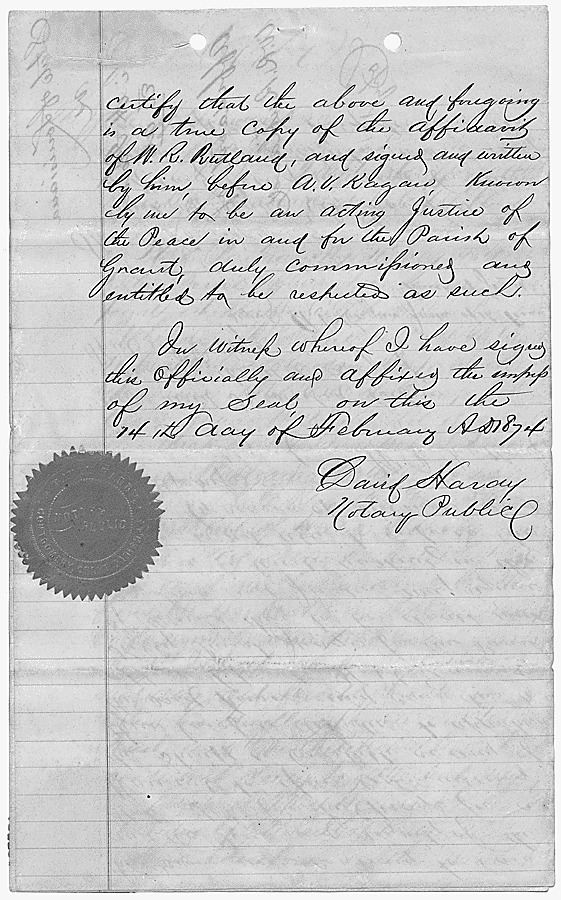 certify that the above and foregoing
is a true copy of the affidavit
of W. R. Rutland, and signed and written
by him, before A. V. Ragan, Known
by me to be an acting Justice of
the Peace in and for the Parish of
Grant, duly commissioned and
entitled to be respected as such.
In Witness whereof I have signed
this officially and affixed the impress
of my Seal, on this the
14th day of February A.D. 1874
David Hardy
Notary Public
NOTARY PUBLIC